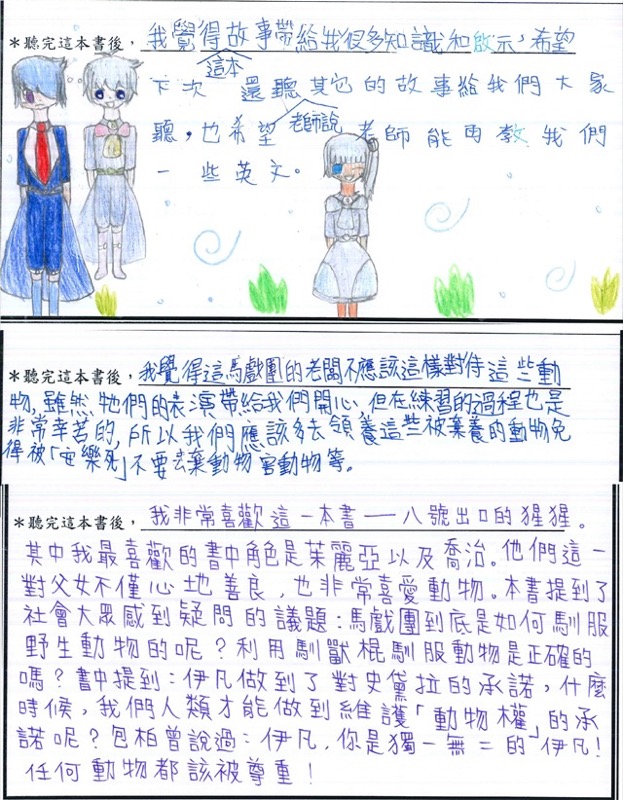 *聽完這本書後，我覺得這本故事帶給我很多知識和啟示，希望
下次老師說還聽其它的故事給我們大家
聽，也希望老師能再教我們
一些英文。
*聽完這本書後，我覺得這馬戲團的老闆不應該這樣對待這些動
物，雖然牠們的表演帶給我們開心，但在練習的過程也是
非常辛苦的，所以我們應該多去領養這些被棄養的動物免
得被「安樂死」不要去棄動物害動物等。
*聽完這本書後，我非常喜歡這一本書——八號出口的猩猩。
其中我最喜歡的書中角色是茱麗亞以及喬治。他們這一
對父女不僅心地善良，也非常喜愛動物。本書提到了
社會大眾感到疑問的議題：馬戲團到底是如何馴服
野生動物的呢？利用馴獸棍馴服動物是正確的
嗎？書中提到：伊凡做到了對史黛拉的承諾，什麼
時候，我們人類才能做到維護「動物權」的承
諾呢？包柏曾說過：伊凡，你是獨一無二的伊凡！
任何動物都該被尊重！